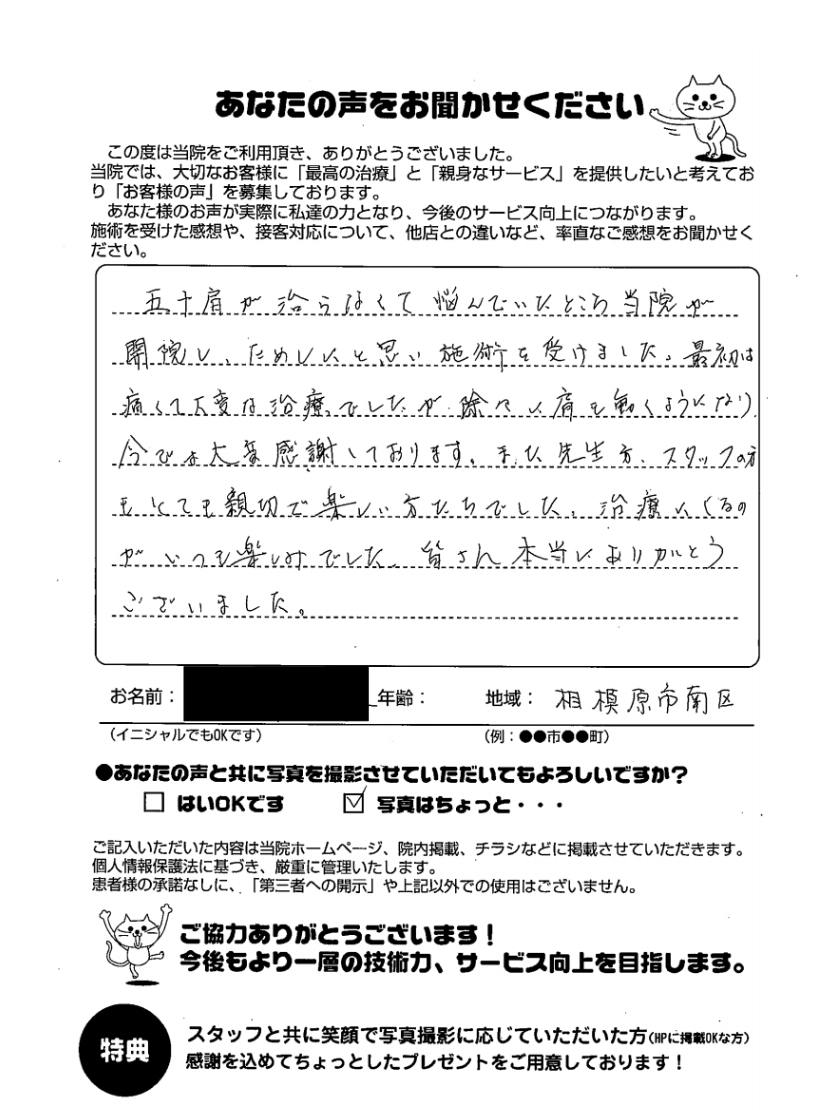 あなたの声をお聞かせください
この度は当院をご利用頂き、ありがとうございました。
当院では、大切なお客様に「最高の治療」と「親身なサービス」を提供したいと考えてお
り「お客様の声」を募集しております。
あなた様のお声が実際に私達の力となり、今後のサービス向上につながります。
施術を受けた感想や、接客対応について、他店との違いなど、率直なご感想をお聞かせく
ださい。
五十肩が治らなくて悩んでいたところ当院が
開院し、ためしにと思い施術を受けました。最初は
痛くて大変な治療でしたが除々に肩も動くようになり
今では大変感謝しております。また先生方、スタッフの方
もとても親切で楽しい方たちでした。治療にくるの
がいつも楽しみでした。皆さん本当にありがとう
ございました。
お名前: 年齢: 地域: 相模原市南区
(イニシャルでもOKです) (例:●●市●●町)
●あなたの声と共に写真を撮影させていただいてもよろしいですか?
□ はいOKです ☑ 写真はちょっと・・・
ご記入いただいた内容は当院ホームページ、院内掲載、チラシなどに掲載させていただきます。
個人情報保護法に基づき、厳重に管理いたします。
患者様の承諾なしに、「第三者への開示」や上記以外での使用はございません。
ご協力ありがとうございます!
今後もより一層の技術力、サービス向上を目指します。
特典
スタッフと共に笑顔で写真撮影に応じていただいた方(HPに掲載OKな方)
感謝を込めてちょっとしたプレゼントをご用意しております!